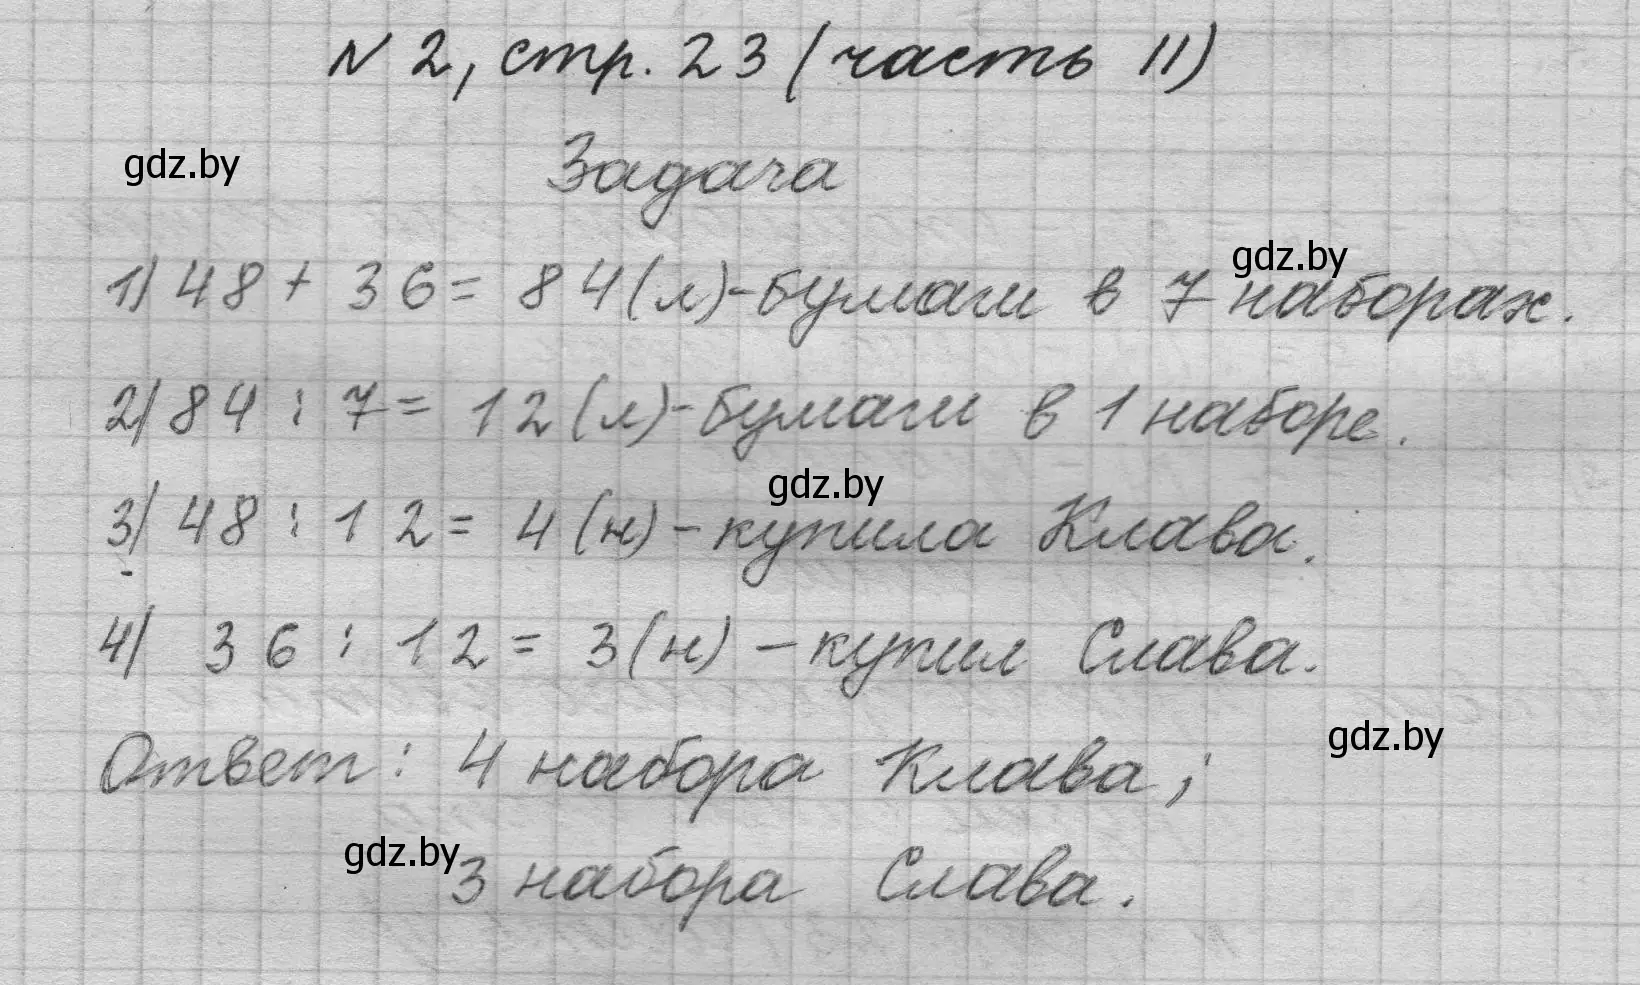 N 2, стр. 23 (часть II)
gdz.by
Задача
gdz.by
1) 48 + 36 = 84 (л) - бумаги в 7 наборах.
2) 84 : 7 = 12 (л) - бумаги в 1 наборе.
gdz.by
3) 48 : 12 = 4 (н) - купила Клава.
4) 36 : 12 = 3 (н) - купил Слава.
gdz.by
Ответ: 4 набора Клава;
gdz.by
3 набора Слава.